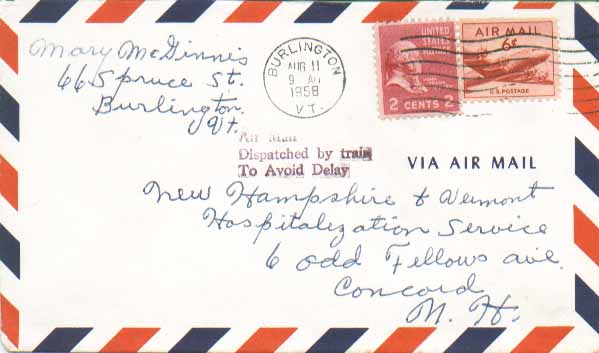 Mary McGinnis
66 Spruce St.
Burlington
Vt.
BURLINGTON
AUG 11
9 AM
1958
VT.
UNITED
STATES
2 CENTS 2
AIR MAIL
6¢
U.S. POSTAGE
Air Mail
Dispatched by train
To Avoid Delay
VIA AIR MAIL
New Hampshire & Vermont
Hospitalization Service
6 Odd Fellows ave.
Concord
N. H.